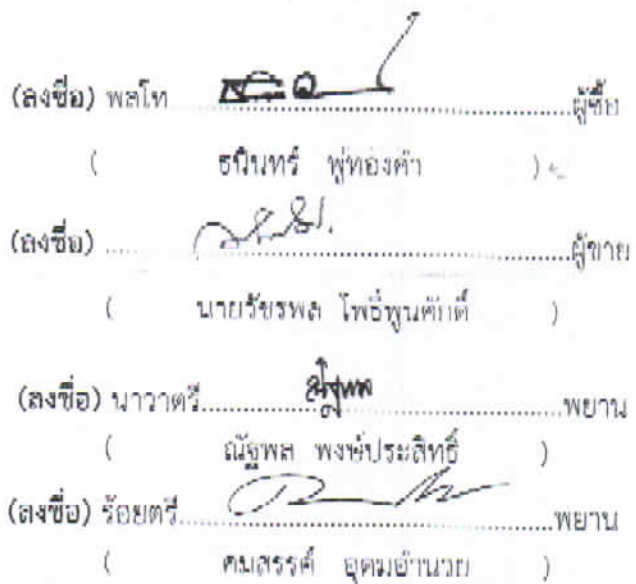 (ลงชื่อ) พลโท..............................ผู้ซื้อ
( ธนินทร์ พู่ทองคำ )
(ลงชื่อ) ..............................ผู้ขาย
( นายวัชรพล โพธิ์พูนศักดิ์ )
(ลงชื่อ) นาวาตรี..............................พยาน
( ณัฐพล พงษ์ประสิทธิ์ )
(ลงชื่อ) ร้อยตรี..............................พยาน
( คมสรรค์ อุดมอำนวย )